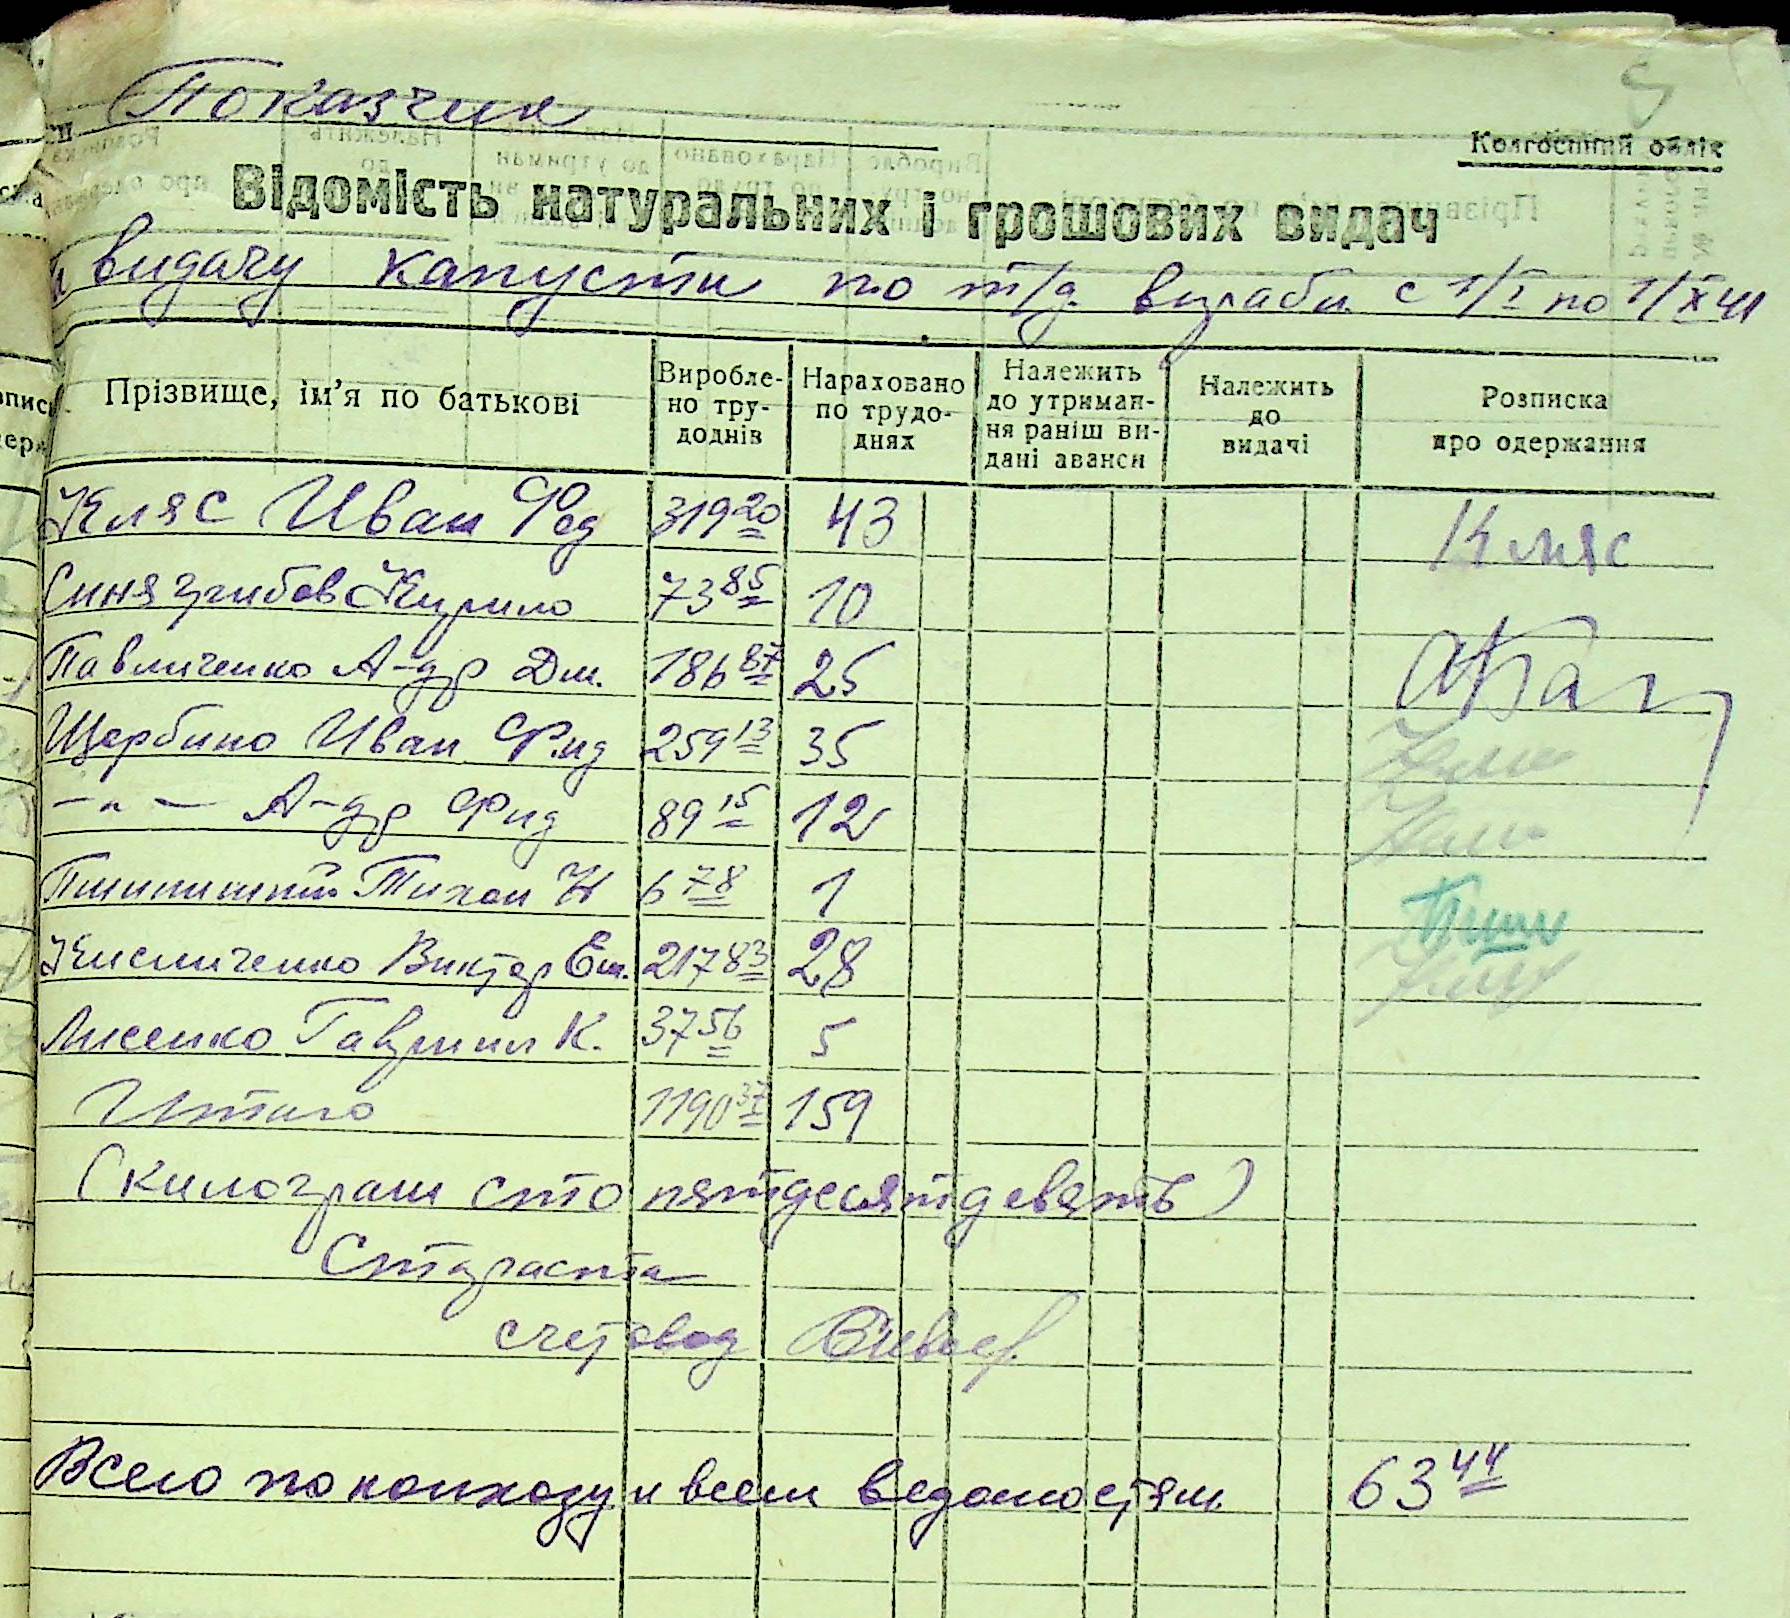 Показчик
5
Колгоспний облік
Відомість натуральних і грошових видач
видачу капусти по т/д. вираби. с 1/I по 1/X 41
Прізвище, ім'я по батькові
Виробле-
но тру-
доднів
Нараховано
по трудо-
днях
Належить
до утриман-
ня раніш ви-
дані аванси
Належить
до
видачі
Розписка
про одержання
Кляс Иван Фед 319 20 43 Кляс
Синягрибов Кирило 73 85 10
Павличенко А-др Дм. 186 87 25
Щербино Иван Фид 259 13 35
— " — А-др Фид 89 15 12
Тихон Н 6 78 1 Пши
Кисличенко Виктор Ем. 217 83 28
Лисенко Гаврил К. 37 56 5
Итого 1190 37 159
(килограм сто пятдесят девять)
Староста
счетовод
Всего по колхозу и всем ведомостям. 63 44